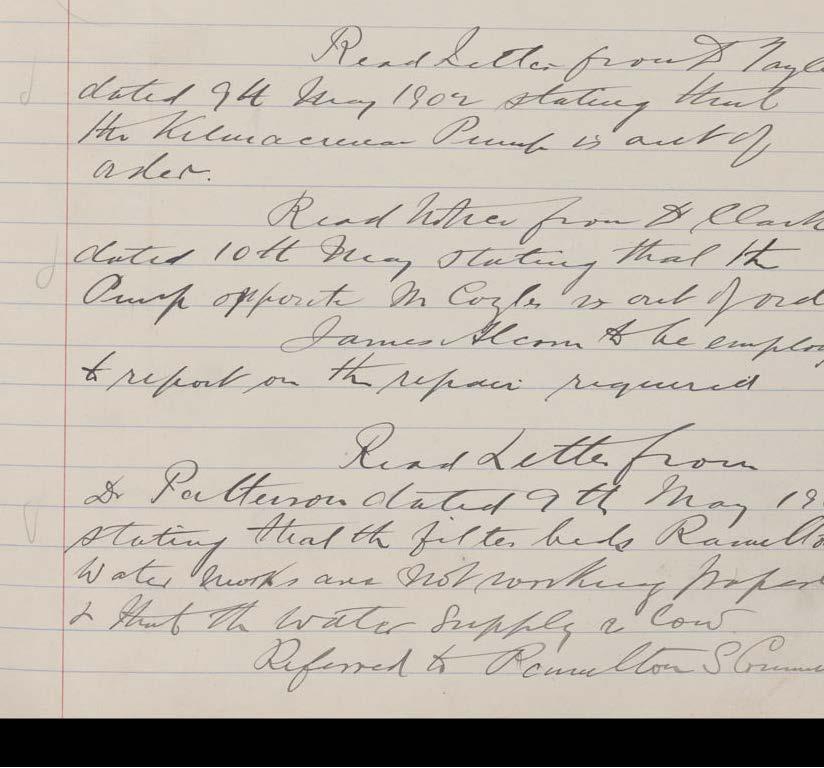 Read Letter from D Tayl
dated 9th May 1902 stating that
the Kilmacrenan Pump is out of
order.
Read Notice from H Clark
dated 10th May stating that the
Pump opposite Mr Coyles is out of ord
James Alcorn to be employ
to report on the repair required
Read Letter from
Dr Patterson dated 9th May 19
stating that the filter beds Ramelto
Water works are not working proper
& that the water supply is low
Referred to Ramelton S Comm